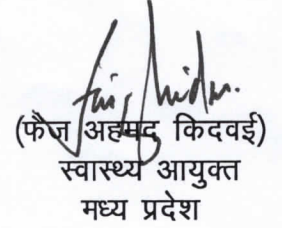 (फैज अहमद किदवई)
स्वास्थ्य आयुक्त
मध्य प्रदेश